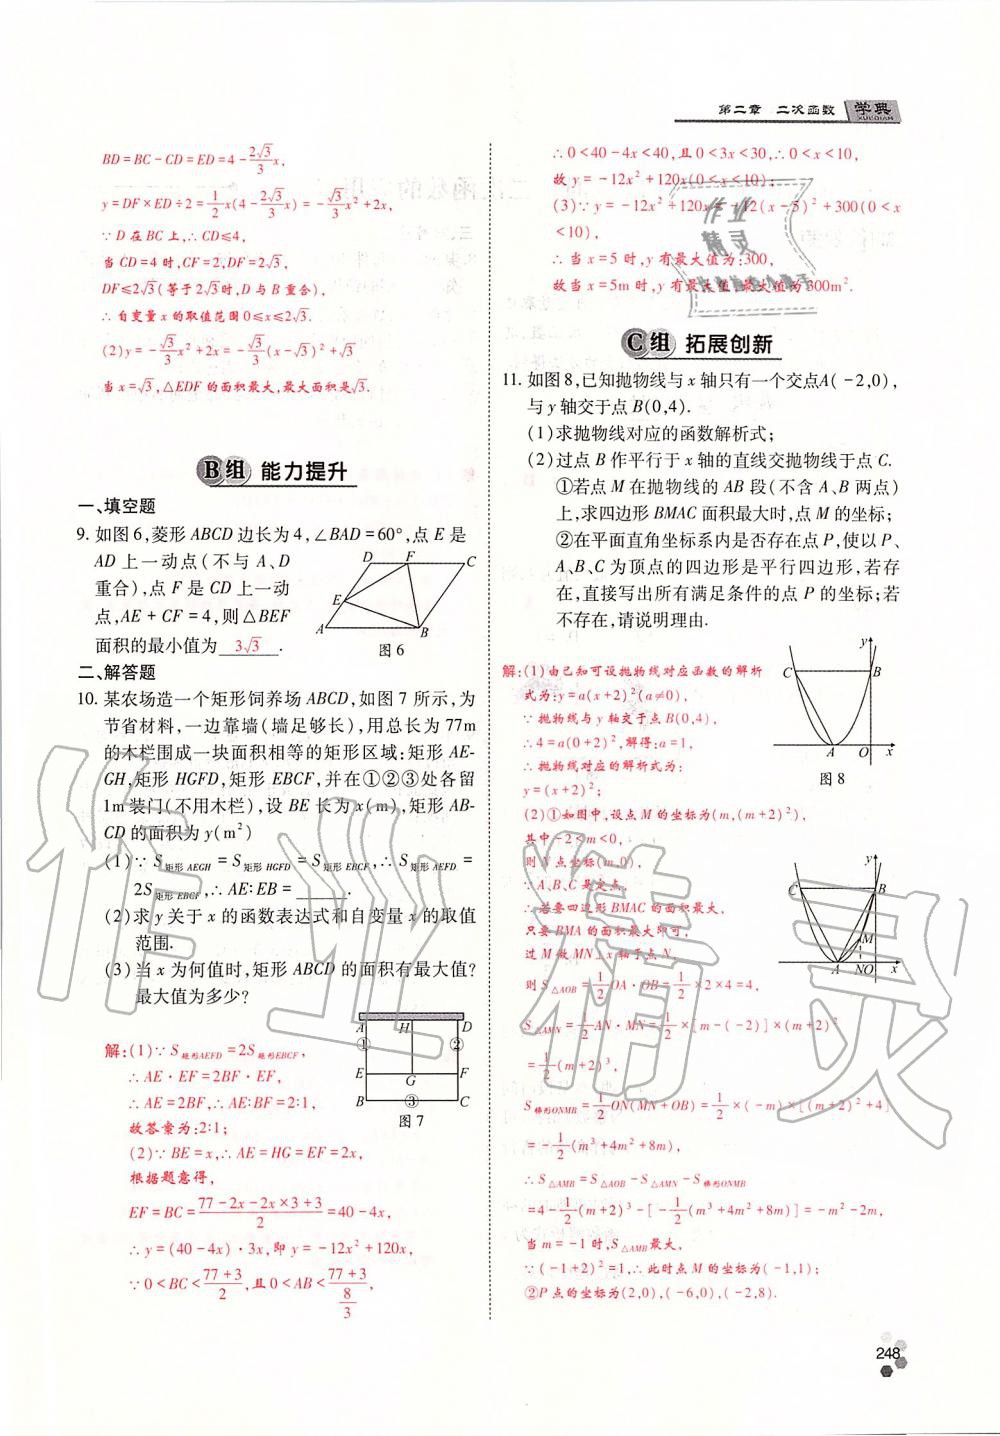 第二章 二次函数 学典
XUEDIAN
BD=BC-CD=ED=4-2√3/3 x,
y=DF×ED÷2=1/2 x(4-2√3/3 x)=-√3/3 x²+2x,
∵D在BC上,∴CD≤4,
当CD=4时,CF=2,DF=2√3,
DF≤2√3(等于2√3时,D与B重合),
∴自变量x的取值范围0≤x≤2√3.
(2)y=-√3/3 x²+2x=-√3/3(x-√3)²+√3
当x=√3,△EDF的面积最大,最大面积是√3.
B组 能力提升
一、填空题
9. 如图6,菱形ABCD边长为4,∠BAD=60°,点E是
AD上一动点(不与A、D
重合),点F是CD上一动
点,AE+CF=4,则△BEF
面积的最小值为 3√3 .
D F C
E
A B
图6
二、解答题
10. 某农场造一个矩形饲养场ABCD,如图7所示,为
节省材料,一边靠墙(墙足够长),用总长为77m
的木栏围成一块面积相等的矩形区域:矩形AE-
GH,矩形HGFD,矩形EBCF,并在①②③处各留
1m装门(不用木栏),设BE长为x(m),矩形AB-
CD的面积为y(m²)
(1)∵S矩形AEGH=S矩形HGFD=S矩形EBCF,∴S矩形AEFD=
2S矩形EBCF,∴AE∶EB=______.
(2)求y关于x的函数表达式和自变量x的取值
范围.
(3)当x为何值时,矩形ABCD的面积有最大值?
最大值为多少?
A H D
① ②
E G F
B ③ C
图7
解:(1)∵S矩形AEFD=2S矩形EBCF,
∴AE·EF=2BF·EF,
∴AE=2BF,∴AE:BF=2:1,
故答案为:2:1;
(2)∵BE=x,∴AE=HG=EF=2x,
根据题意得,
EF=BC=(77-2x-2x×3+3)/2=40-4x,
∴y=(40-4x)·3x,即y=-12x²+120x,
∵0<BC<(77+3)/2,且0<AB<(77+3)/(8/3),
∴0<40-4x<40,且0<3x<30,∴0<x<10,
故y=-12x²+120x(0<x<10);
(3)∵y=-12x²+120x=-12(x-5)²+300(0<x
<10),
∴当x=5时,y有最大值为:300,
故当x=5m时,y有最大值,最大值为300m².
C组 拓展创新
11. 如图8,已知抛物线与x轴只有一个交点A(-2,0),
与y轴交于点B(0,4).
(1)求抛物线对应的函数解析式;
(2)过点B作平行于x轴的直线交抛物线于点C.
①若点M在抛物线的AB段(不含A、B两点)
上,求四边形BMAC面积最大时,点M的坐标;
②在平面直角坐标系内是否存在点P,使以P、
A、B、C为顶点的四边形是平行四边形,若存
在,直接写出所有满足条件的点P的坐标;若
不存在,请说明理由.
解:(1)由已知可设抛物线对应函数的解析
式为:y=a(x+2)²(a≠0),
∵抛物线与y轴交于点B(0,4),
∴4=a(0+2)²,解得:a=1,
∴抛物线对应的解析式为:
y=(x+2)²;
y
C B
A O x
图8
(2)①如图中,设点M的坐标为(m,(m+2)²),
其中-2<m<0,
则N点坐标(m,0),
∵A、B、C是定点,
∴若要四边形BMAC的面积最大,
只要BMA的面积最大即可,
过M做MN⊥x轴于点N,
y
C B
M
A NO x
则S△AOB=1/2 OA·OB=1/2×2×4=4,
S△AMN=1/2 AN·MN=1/2×[m-(-2)]×(m+2)²
=1/2(m+2)³,
S梯形ONMB=1/2 ON(MN+OB)=1/2×(-m)×[(m+2)²+4]
=-1/2(m³+4m²+8m),
∴S△AMB=S△AOB-S△AMN-S梯形ONMB
=4-1/2(m+2)³-[-1/2(m³+4m²+8m)]=-m²-2m
当m=-1时,S△AMB最大,
∵(-1+2)²=1,∴此时点M的坐标为(-1,1);
②P点的坐标为(2,0),(-6,0),(-2,8).
248
作业精灵
作业
精灵